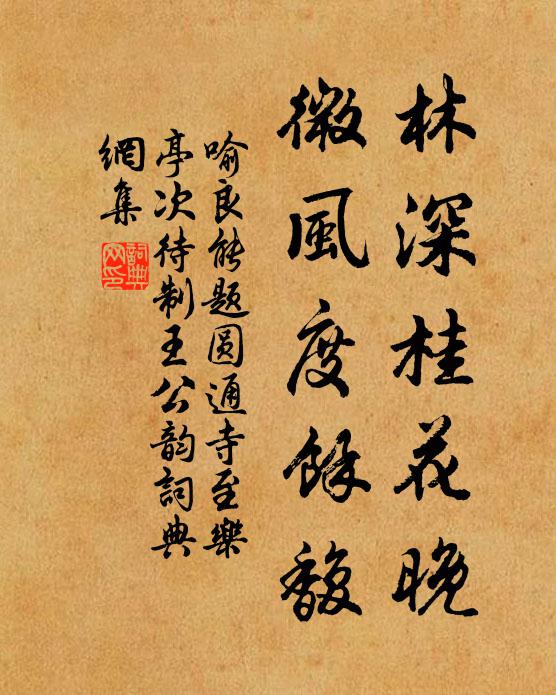 林深桂花晚
微風度餘馥
喻良能題圆通寺至樂
亭次待制王公韵詞典
網集
詞典
网印